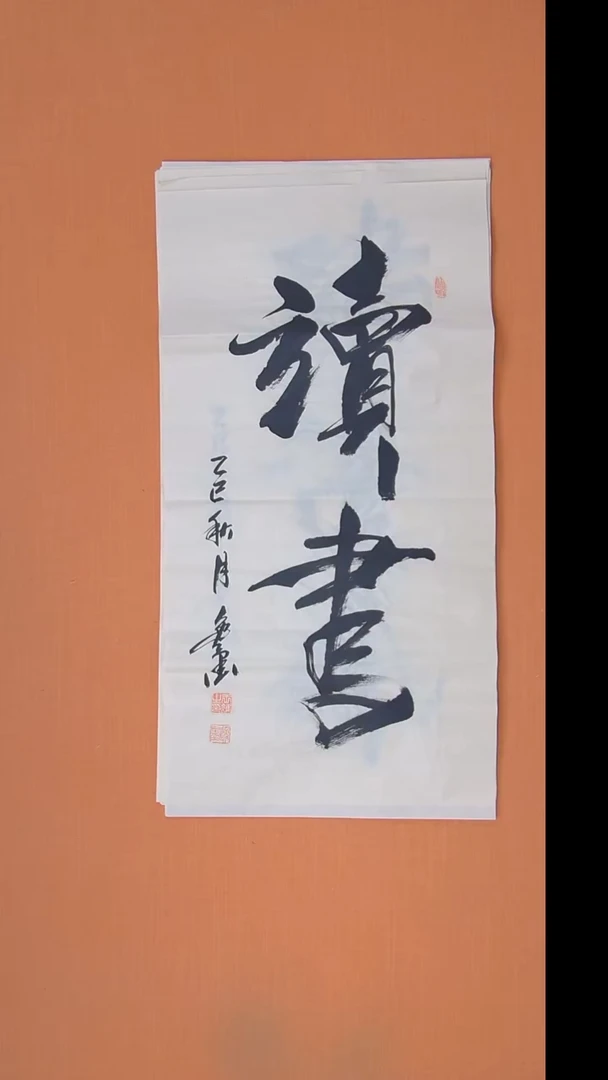 讀書
乙巳秋月